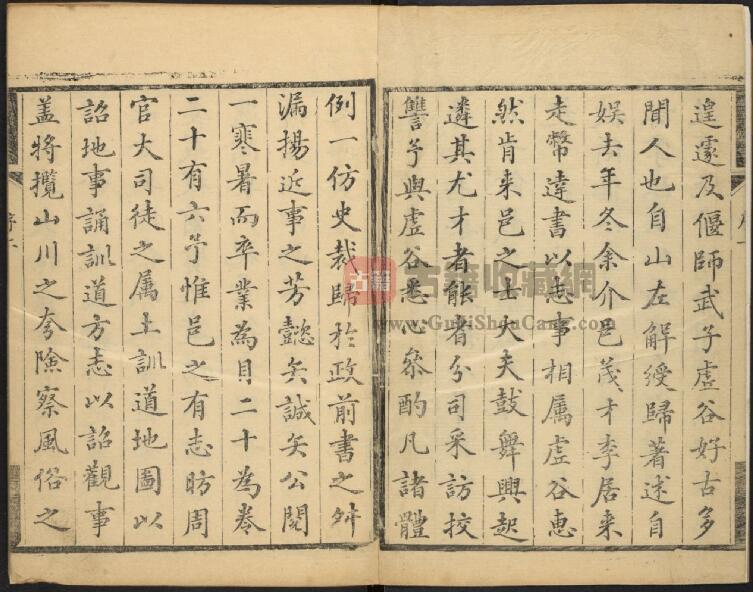 遑遽及偃師武子虛谷好古多
聞人也自山左解綬歸著述自
娛去年冬余介邑茂才李居来
走幣達書以志事相属虛谷惠
然肯来邑之士大夫鼓舞興起
遴其尤才者能者分司采訪挍
讐予與虛谷悉心叅酌凡諸體
例一仿史裁歸於政前書之舛
漏揚近事之芳懿矣誠矣公閱
一寒暑而卒業為目二十為卷
二十有六予惟邑之有志昉周
官大司徒之属土訓道地圖以
詔地事誦訓道方志以詔觀事
盖將攬山川之夸險察風俗之
古籍
古籍收藏網
www.GuJiShouCang.com